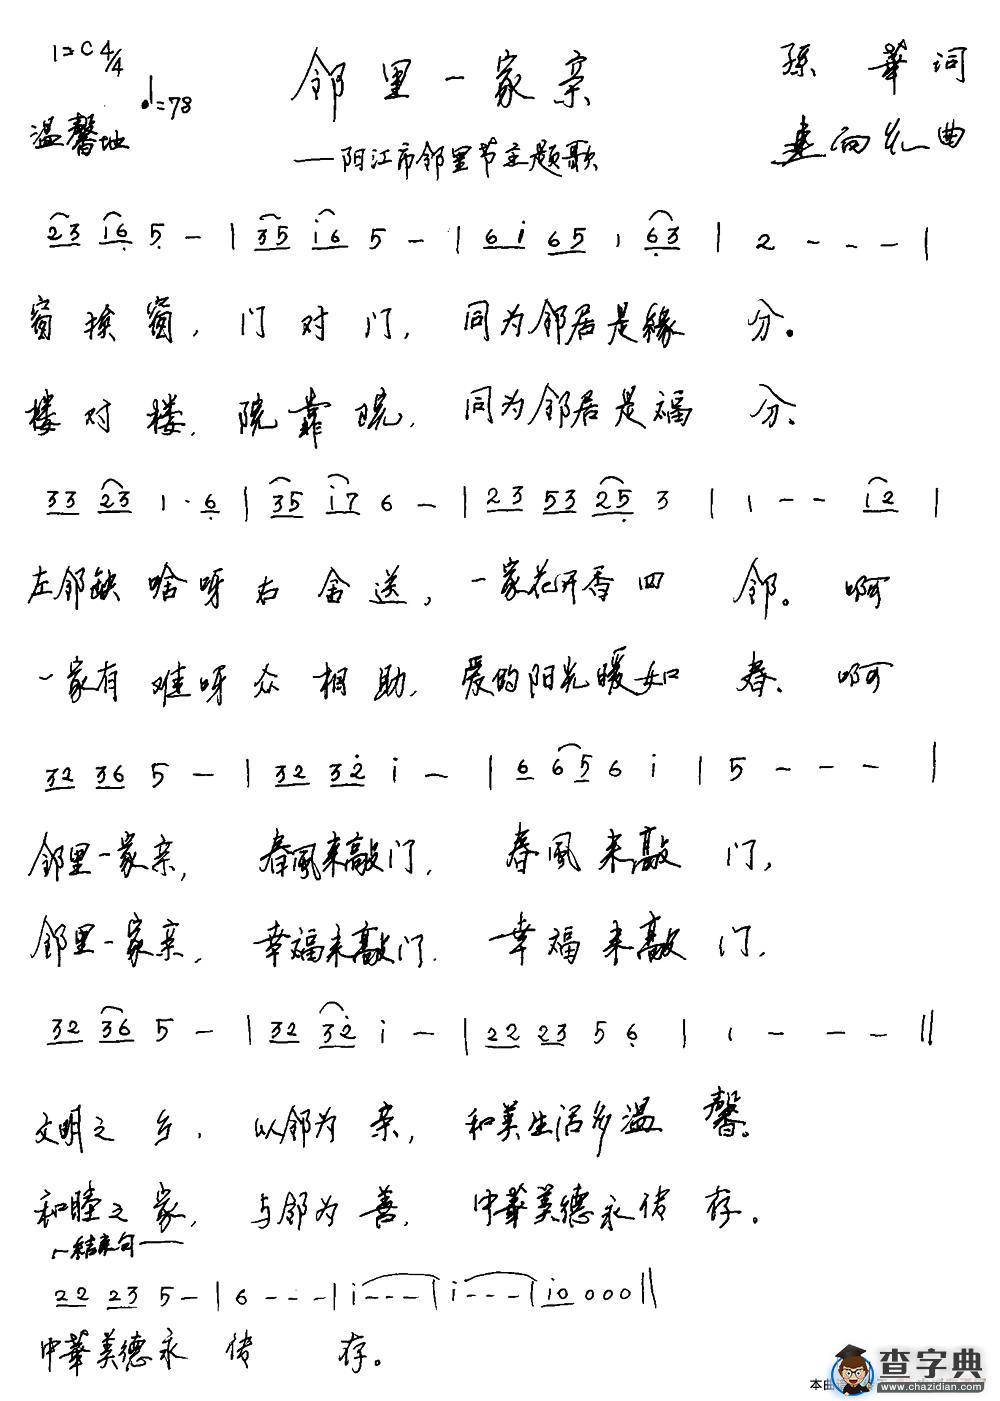 1=C 4/4
♩=78
温馨地
邻里一家亲
孫華词
——阳江市邻里节主题歌
向 曲
23 i6 5 - | 35 i6 5 - | 6i 65 1 63 | 2 - - - |
窗挨窗,门对门,同为邻居是緣分。
楼对楼,院靠院,同为邻居是福分。
33 23 1· 6 | 35 i7 6 - | 23 53 25 3 | 1 - - i2 |
左邻缺啥呀右舍送,一家花开香四邻。啊
一家有难呀众相助,爱的阳光暖如春。啊
32 36 5 - | 32 32 i - | 6 65 6 i | 5 - - - |
邻里一家亲,春風来敲门,春風来敲门,
邻里一家亲,幸福来敲门,幸福来敲门,
32 36 5 - | 32 32 i - | 22 23 5 6 | 1 - - - ||
文明之乡,以邻为亲,和美生活多温馨。
和睦之家,与邻为善,中華美德永传存。
结束句
22 23 5 - | 6 - - - | i - - - | i - - - | i0 0 0 0 ||
中華美德永传存。
本曲
查字典
www.chazidian.com